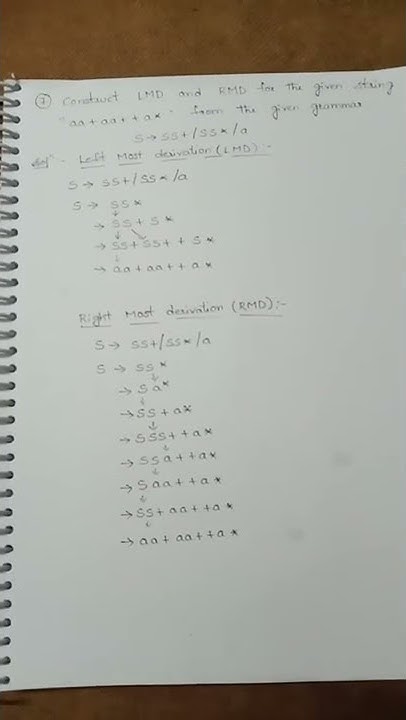 ⑦ Construct LMD and RMD for the given string
"aa+aa++a*" from the given grammar
S → SS+/SS*/a
Solⁿ:- Left Most derivation (LMD):-
S → SS+/SS*/a
S → SS*
→ SS+S*
→ SS+SS++S*
→ aa+aa++a*
Right Most derivation (RMD):-
S → SS+/SS*/a
S → SS*
→ Sa*
→ SS+a*
→ SSS++a*
→ SSa++a*
→ Saa++a*
→ SS+aa++a*
→ aa+aa++a*